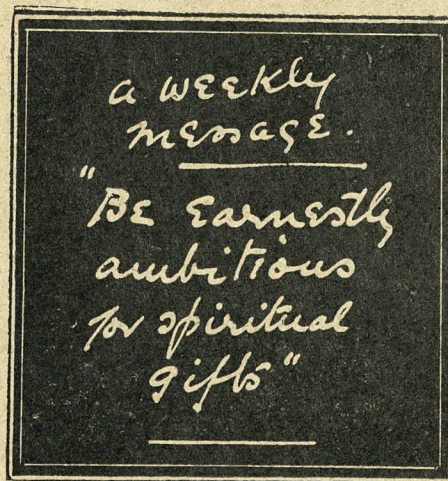 a weekly
message.
"Be earnestly
ambitious
for spiritual
gifts"